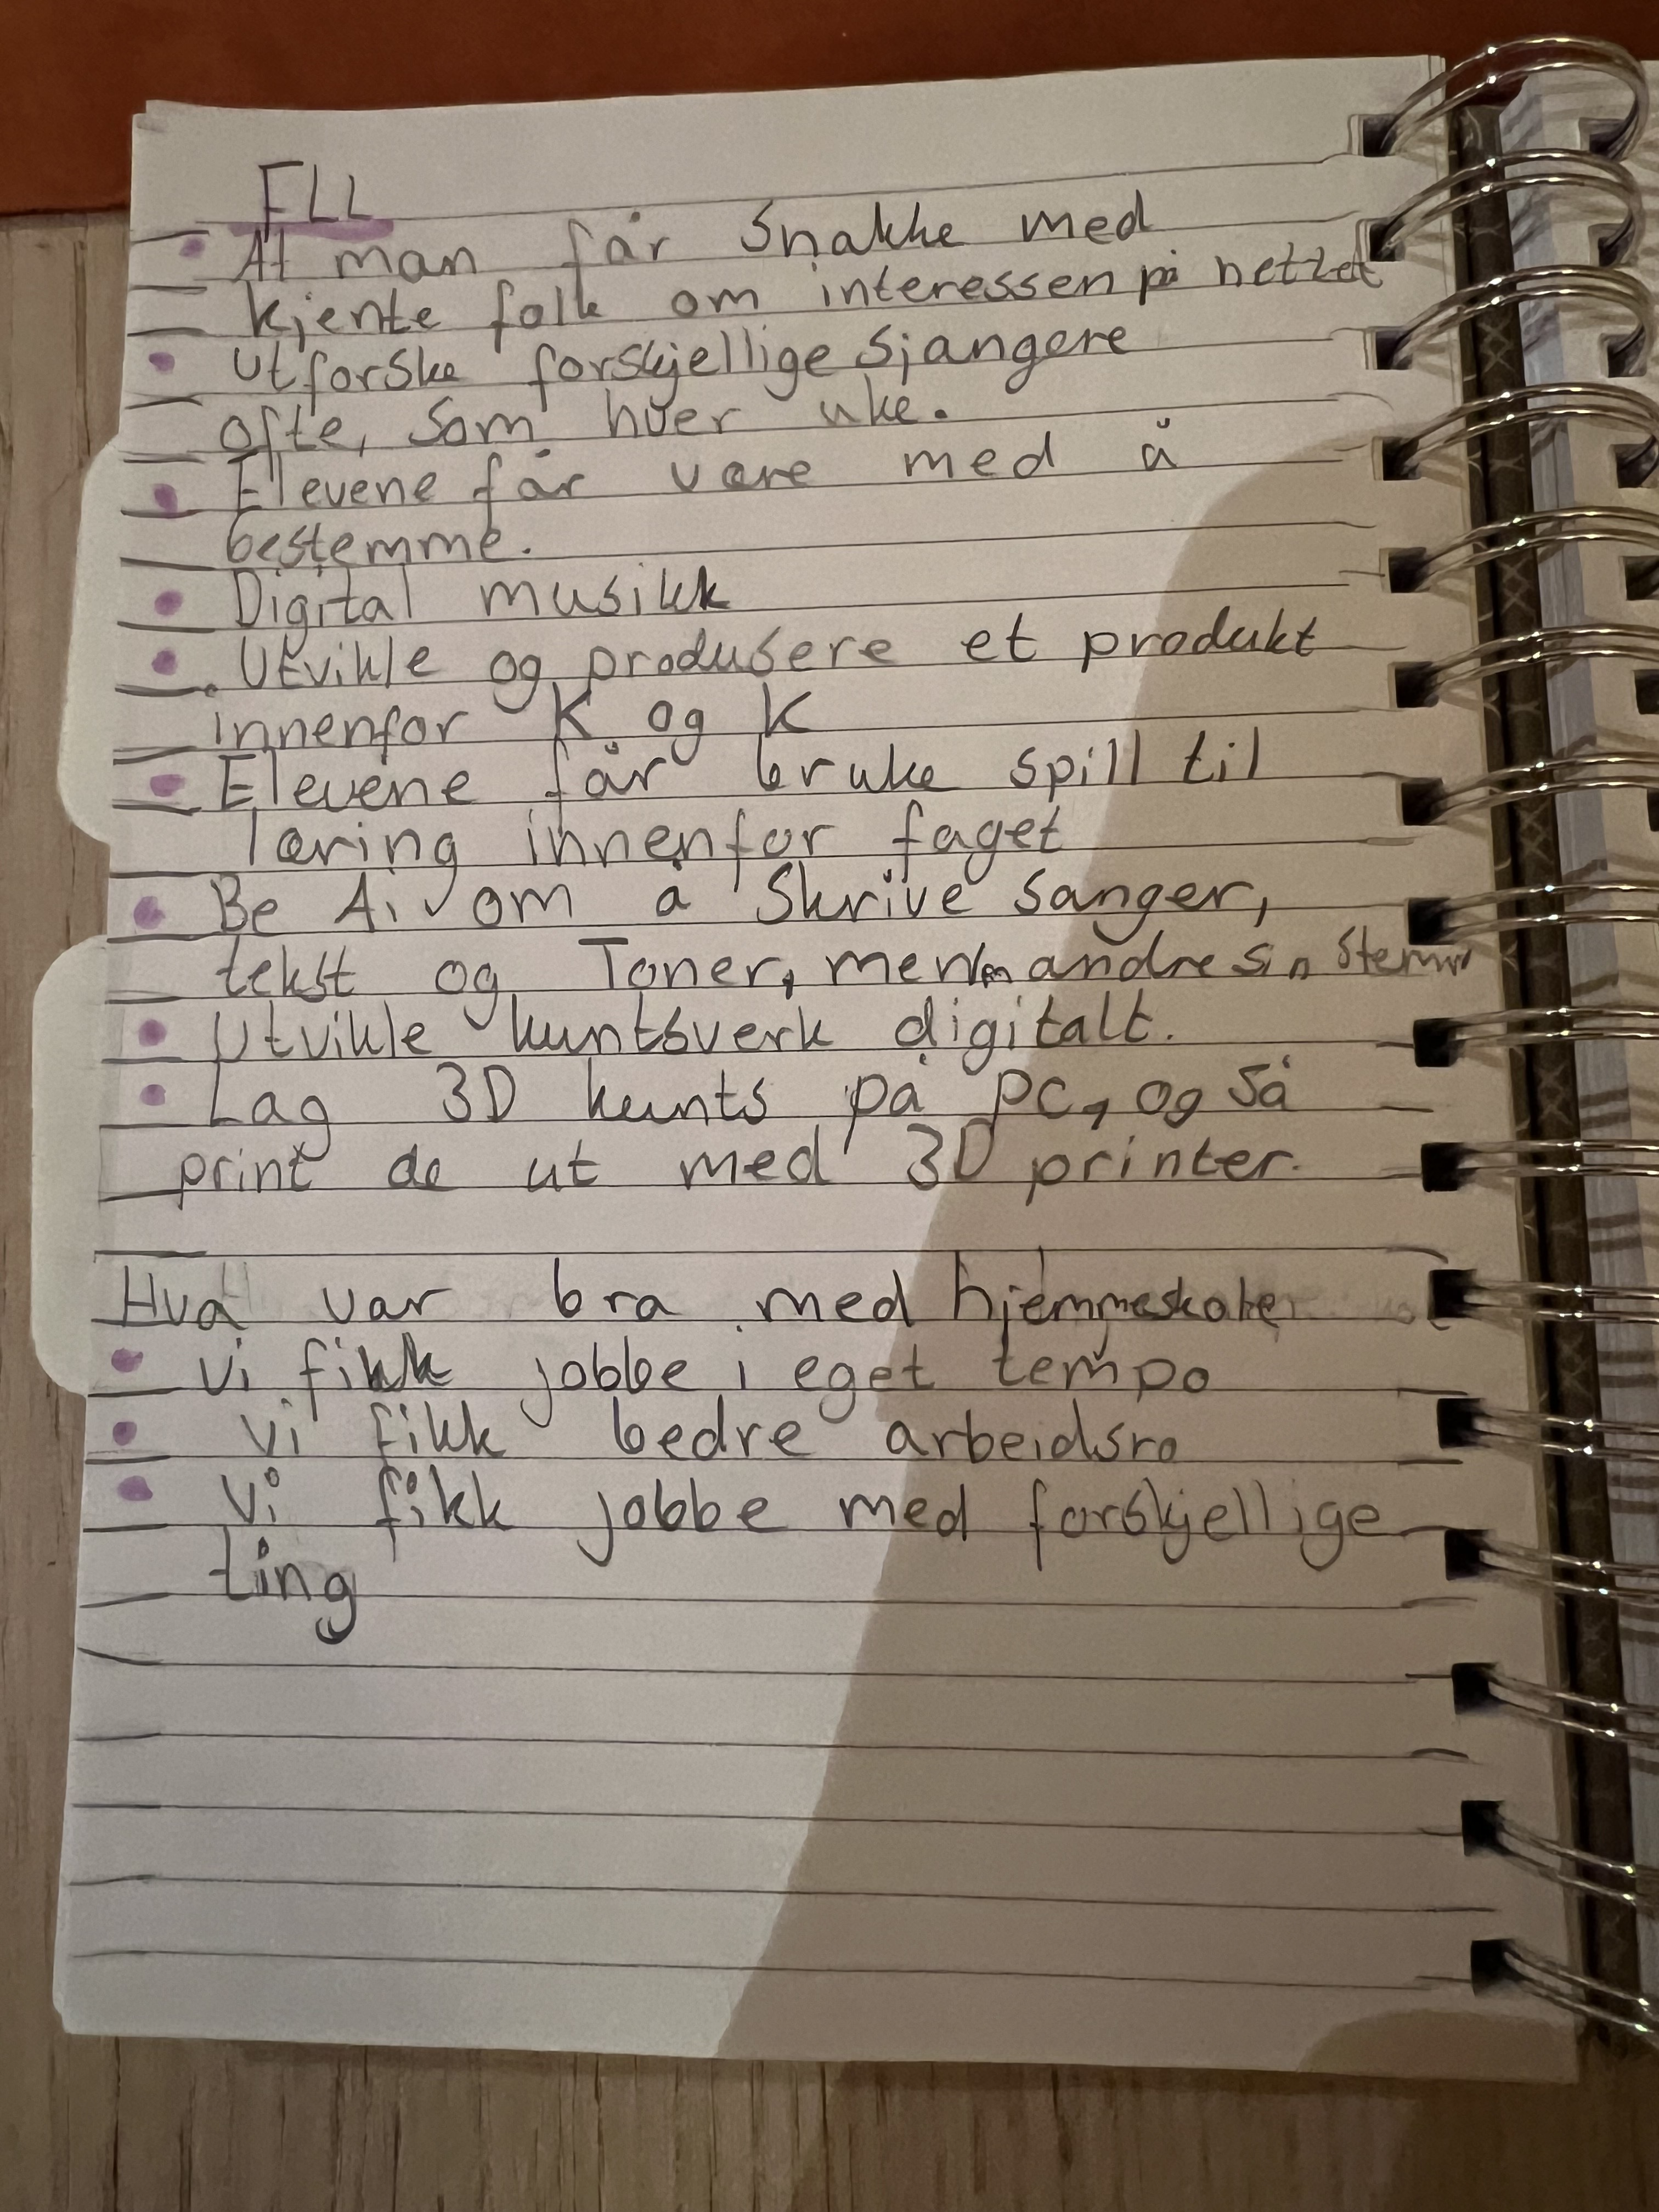 FLL
At man får snakke med
kjente folk om interessen på nettet
utforske forskjellige sjangere
ofte, som hver uke.
Elevene får være med å
bestemme.
Digital musikk
Utvikle og produsere et produkt
innenfor K og K
Elevene får bruke spill til
læring innenfor faget
Be Ai om å skrive sanger,
tekst og Toner, men andre sin stemme
Utvikle kuntsverk digitalt.
Lag 3D kunts på PC, og så
print de ut med 3D printer.
Hva var bra med hjemmeskole
Vi fikk jobbe i eget tempo
Vi fikk bedre arbeidsro
Vi fikk jobbe med forskjellige
ting